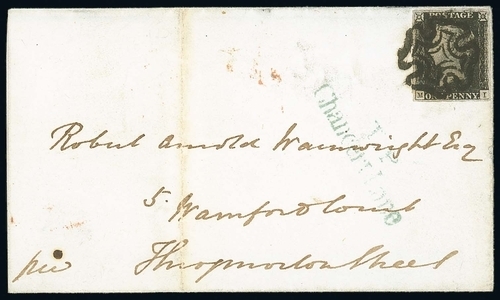 POSTAGE
M ONE PENNY I
T.P
Chancery Lane
Robert Arnold Wainwright Esq
5. Warnford Court
Throgmorton Street